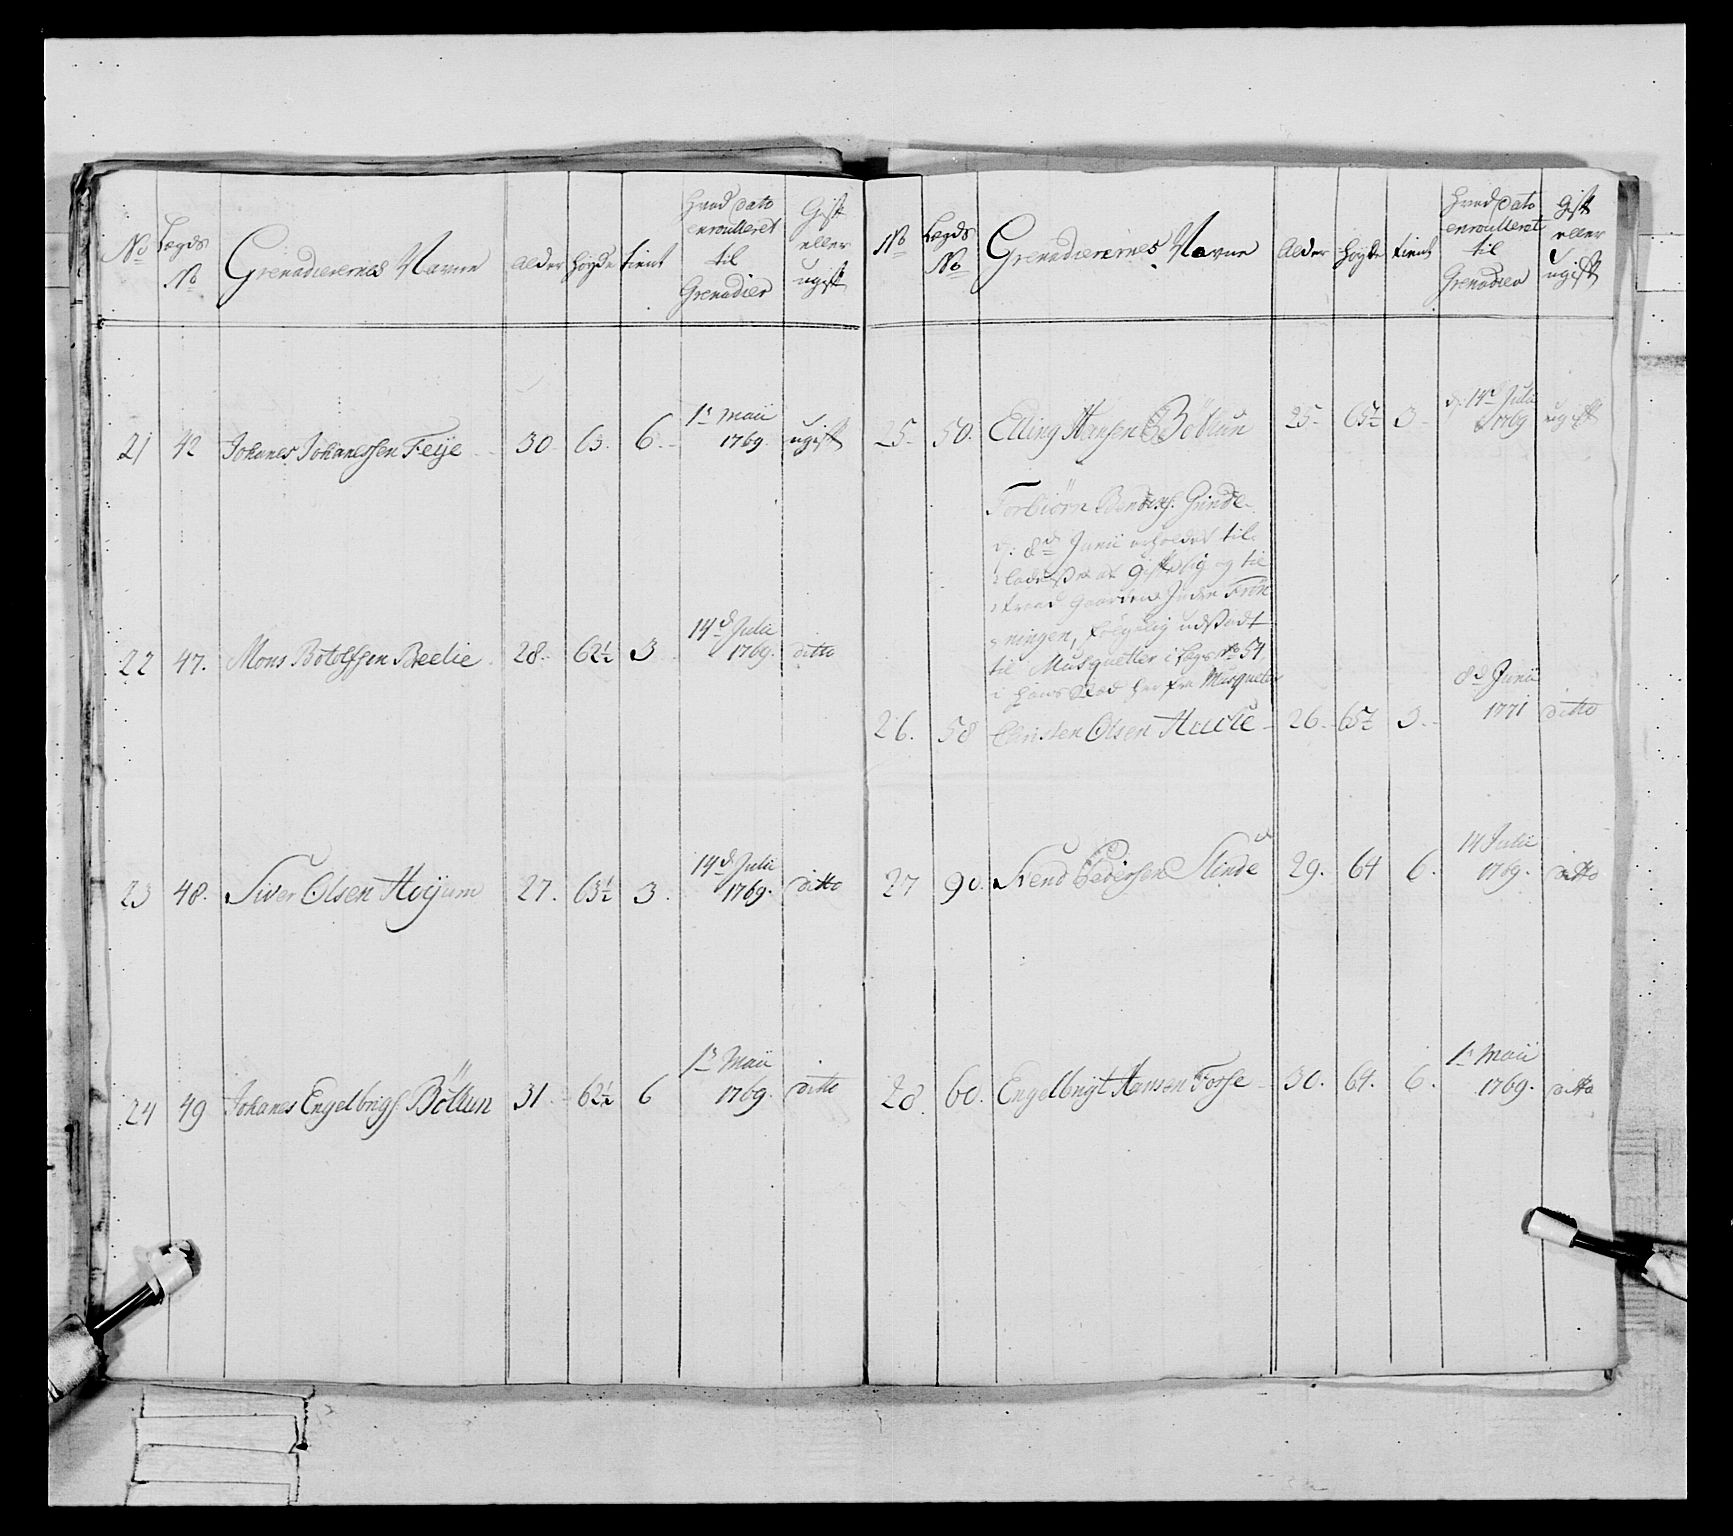 No Lægds No Grenadierernes Navne Alder Høyde tient hvad dato enroulleret til Grenadier Gift eller ugift
21 42 Johanes Johanessen Feije 30 63. 6. 1s Maii 1769. ugift
22 47. Mons Botolfssen Beelie 28. 62½ 3 14d Julii 1769. ditto
23 48. Siver Olsen Høyum 27. 63½ 3. 14d Julii 1769. ditto
24 49 Johanes Engelbrigs. Böllun 31. 62½ 6 1s Maii 1769. ditto
No Lægds No Grenadierernes Navne Alder Høyde tient hvad dato enroulleret til Grenadier Gift eller ugift
25. 50. Elling Hansen Böllun 25. 65½ 3. d: 14d Julii 1769 ugift
Torbiörn Grinde
d: 8d Junii erholdet til-
ladelse at gifte sig og til-
traad Gaarden Indre Frön-
ningen, fölgelig udstödt
til Musqueter i Lægd No 54
i hans Sted her fra Musqueter
26. 58 Christen Olsen 26. 65½ 3. 8d Junii 1771 ditto
27 90. Svend Pedersen Slinde 29. 64 6. 14 Julii 1769. ditto
28. 60. Engelbrigt Hansen Fosse 30. 64. 6. 1s Maii 1769. ditto